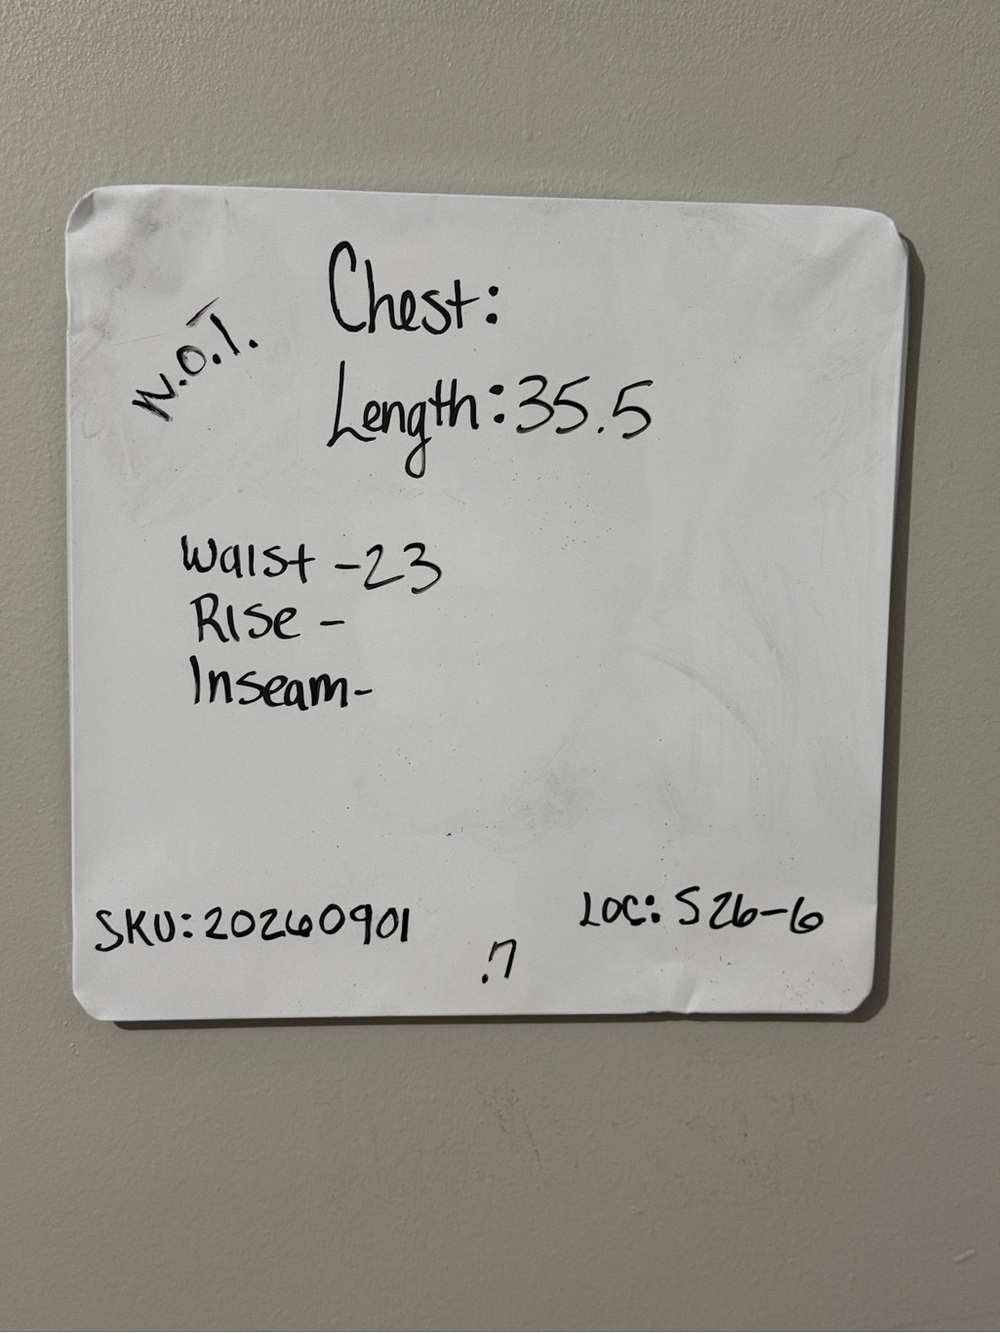 N.O.T.
Chest:
Length: 35.5
Waist - 23
Rise -
Inseam-
SKU: 20260901
LOC: S26-6
.7